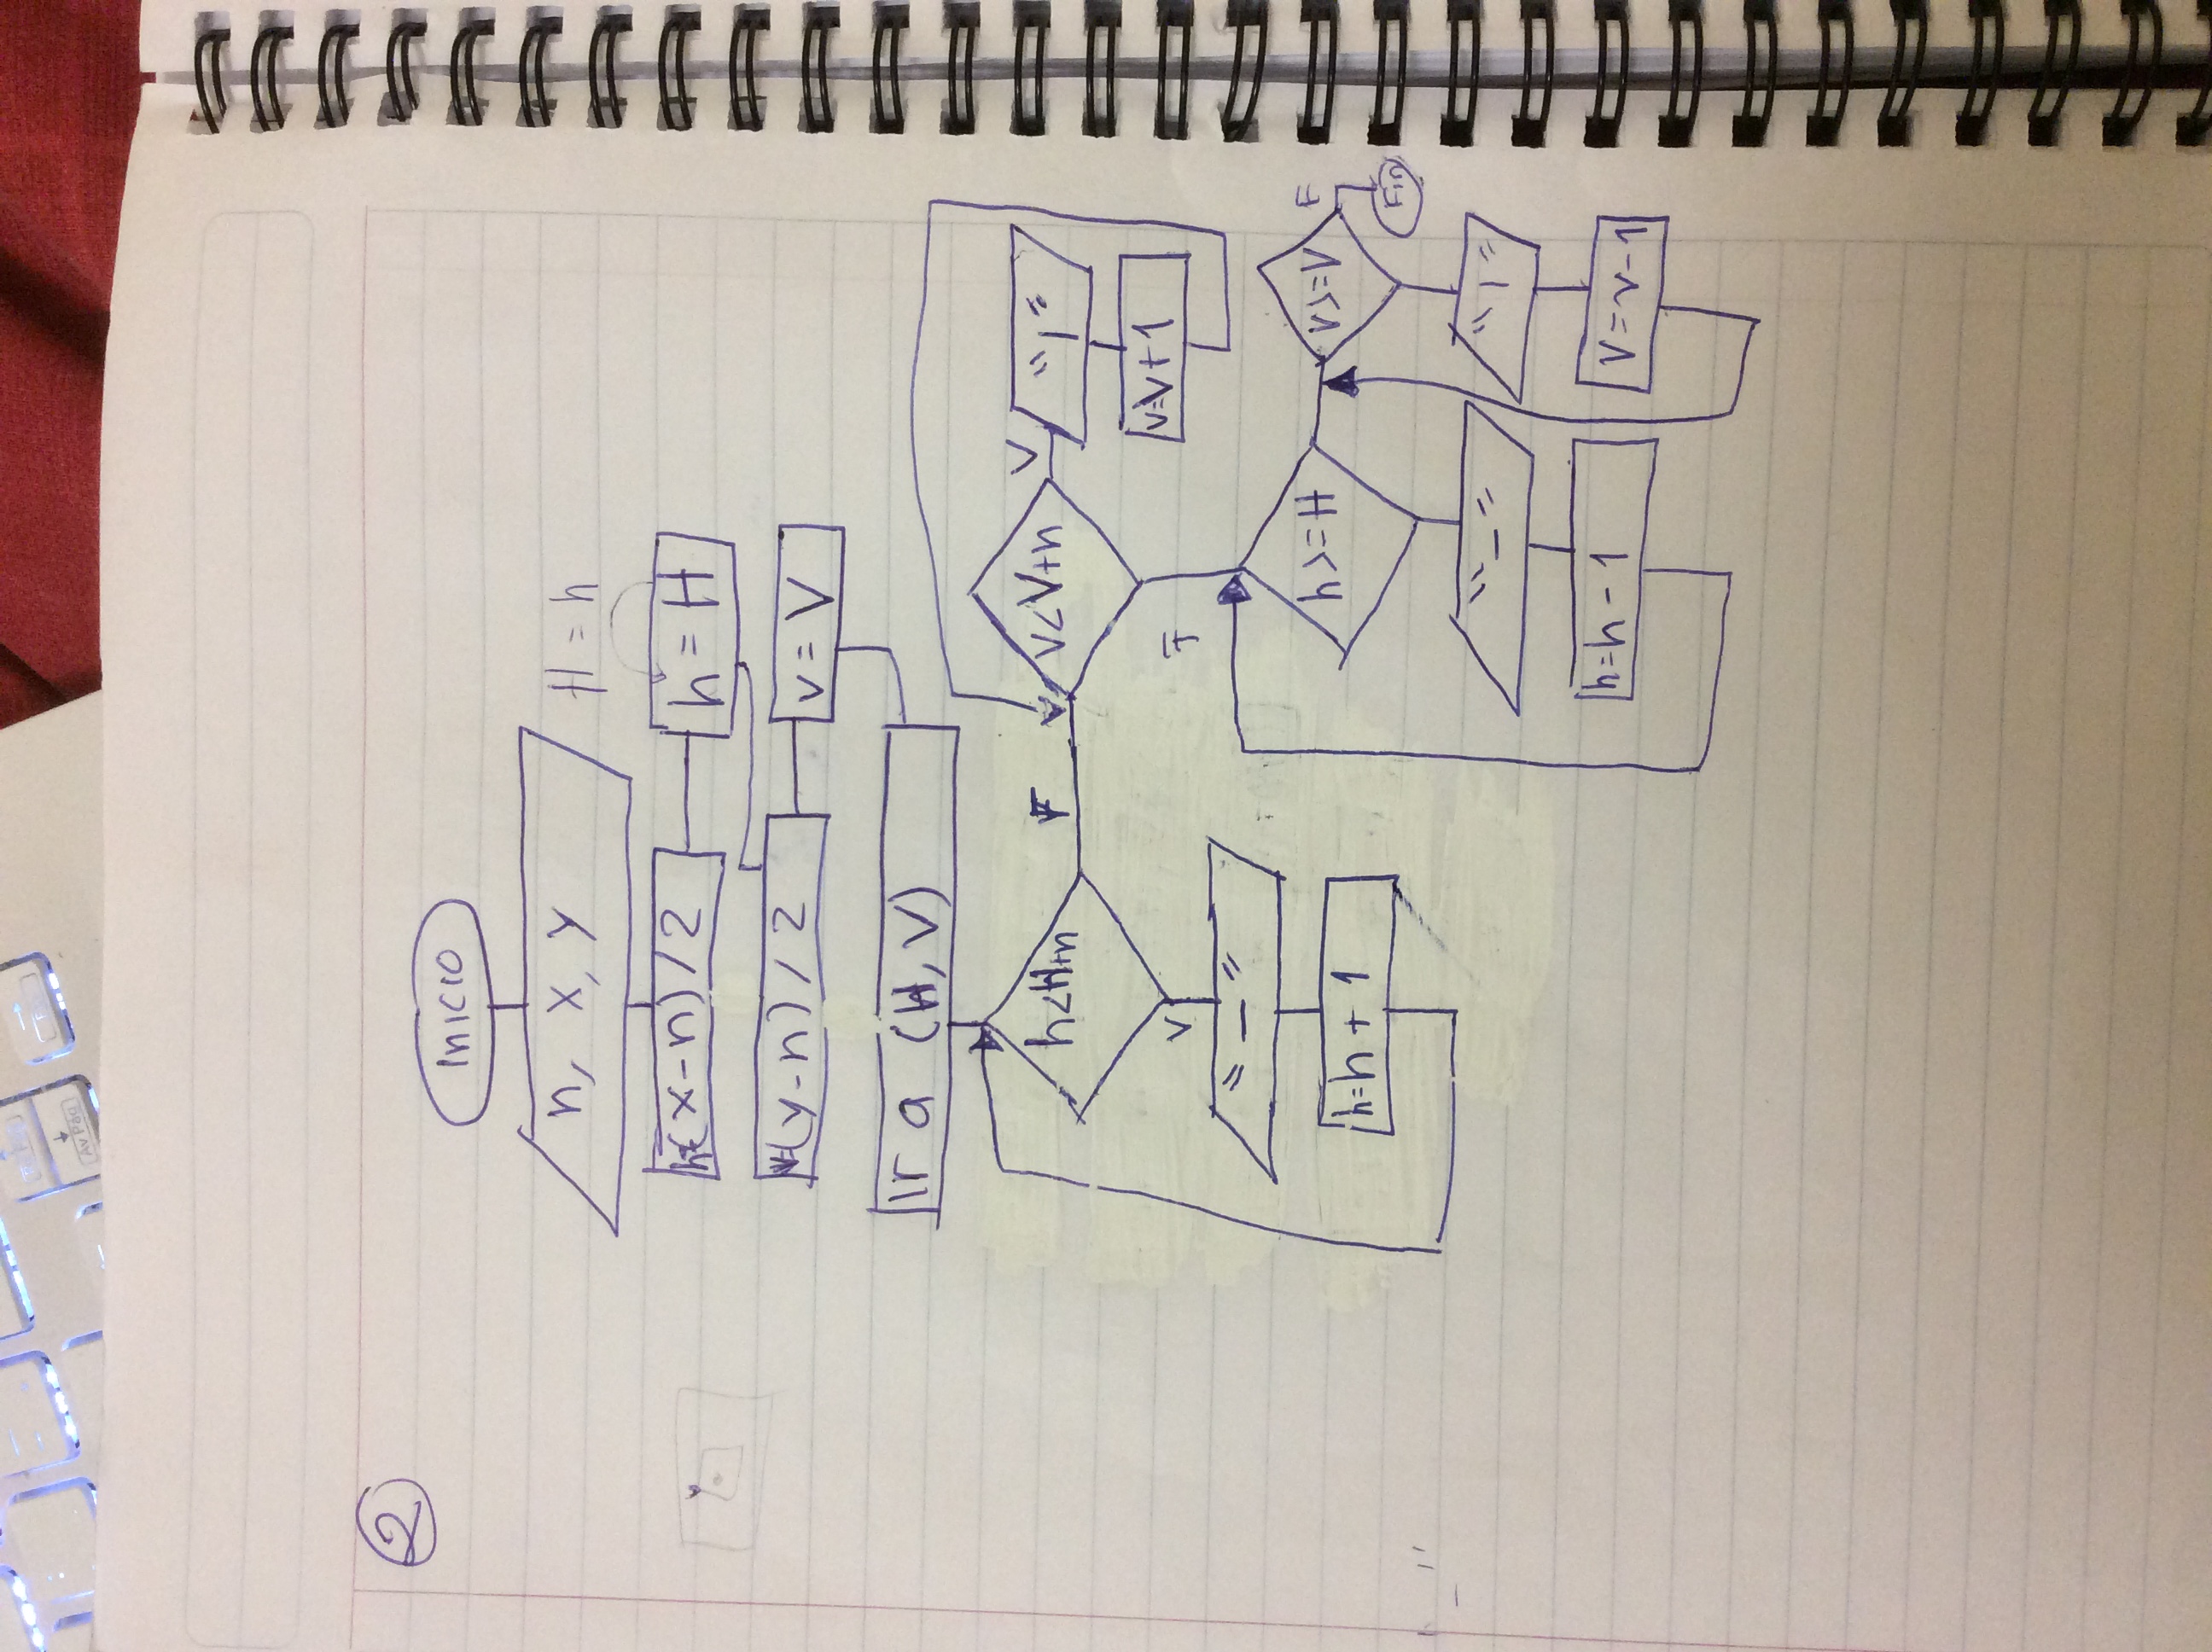 Av Pág
2
Inicio
n, x, y
H = h
h=(x-n)/2
h = H
(y-n)/2
v = V
Ir a (H, V)
h<H+n
F
v<V+n
V
"|"
v=v+1
V
"_"
h=h+1
F
h>=H
v>=V
F
Fin
"_"
"|"
h=h-1
v=v-1